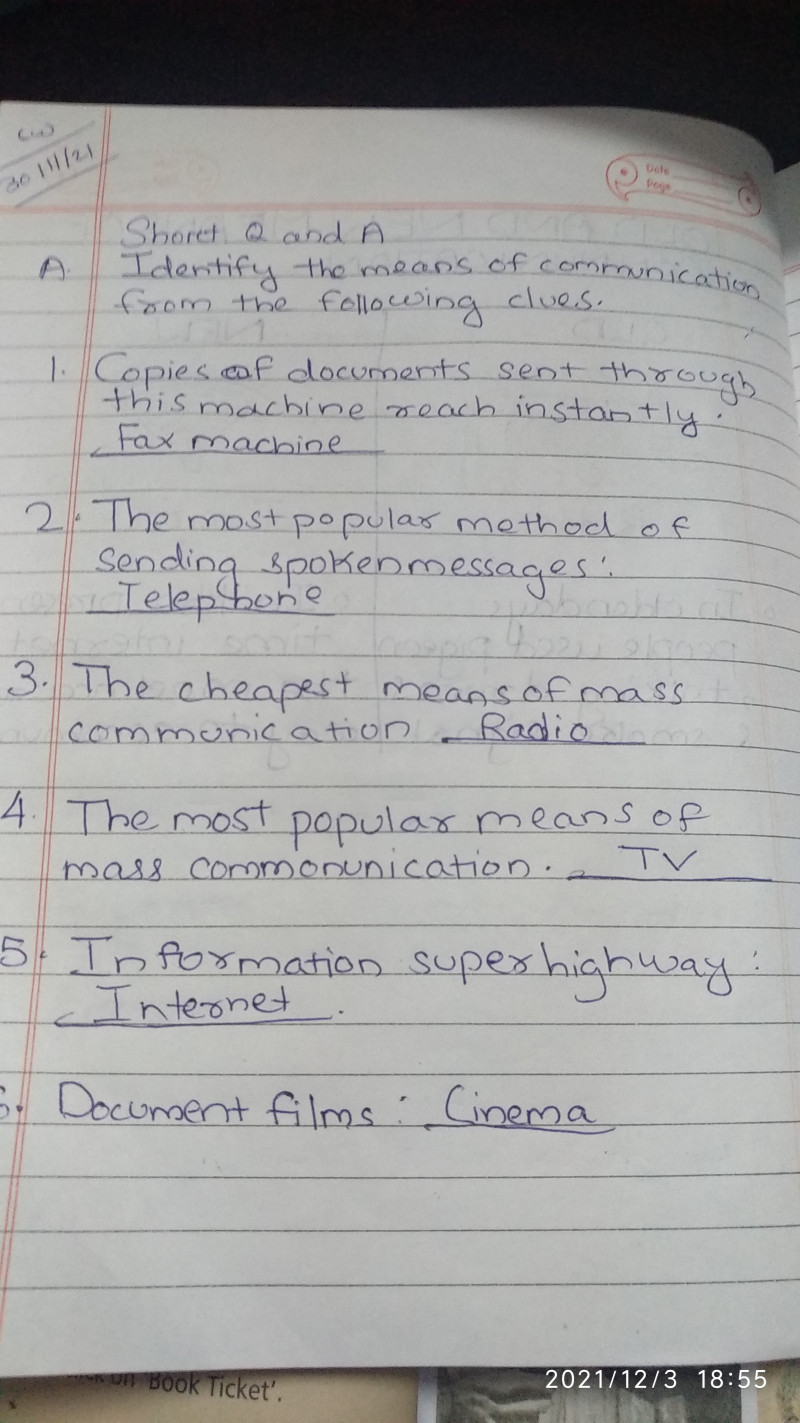 CW
30/11/21
Date
Page
Shoret Q and A
A. Identify the means of communication
from the following clues.
1. Copies of documents sent through
this machine reach instantly.
Fax machine
2. The most popular method of
sending spoken messages:
Telephone
3. The cheapest means of mass
communication Radio
4. The most popular means of
mass commonunication. TV
5. Information superhighway:
Internet.
6. Document films: Cinema
'Book Ticket'.
2021/12/3 18:55